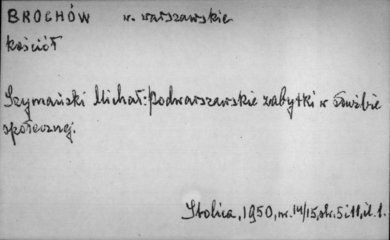 BROCHÓW w. warszawskie
kościół
Szymański Michał: Podwarszawskie zabytki w służbie
społecznej.
Stolica, 1950, nr. 14/15, str. 5 i 11, il. 1.